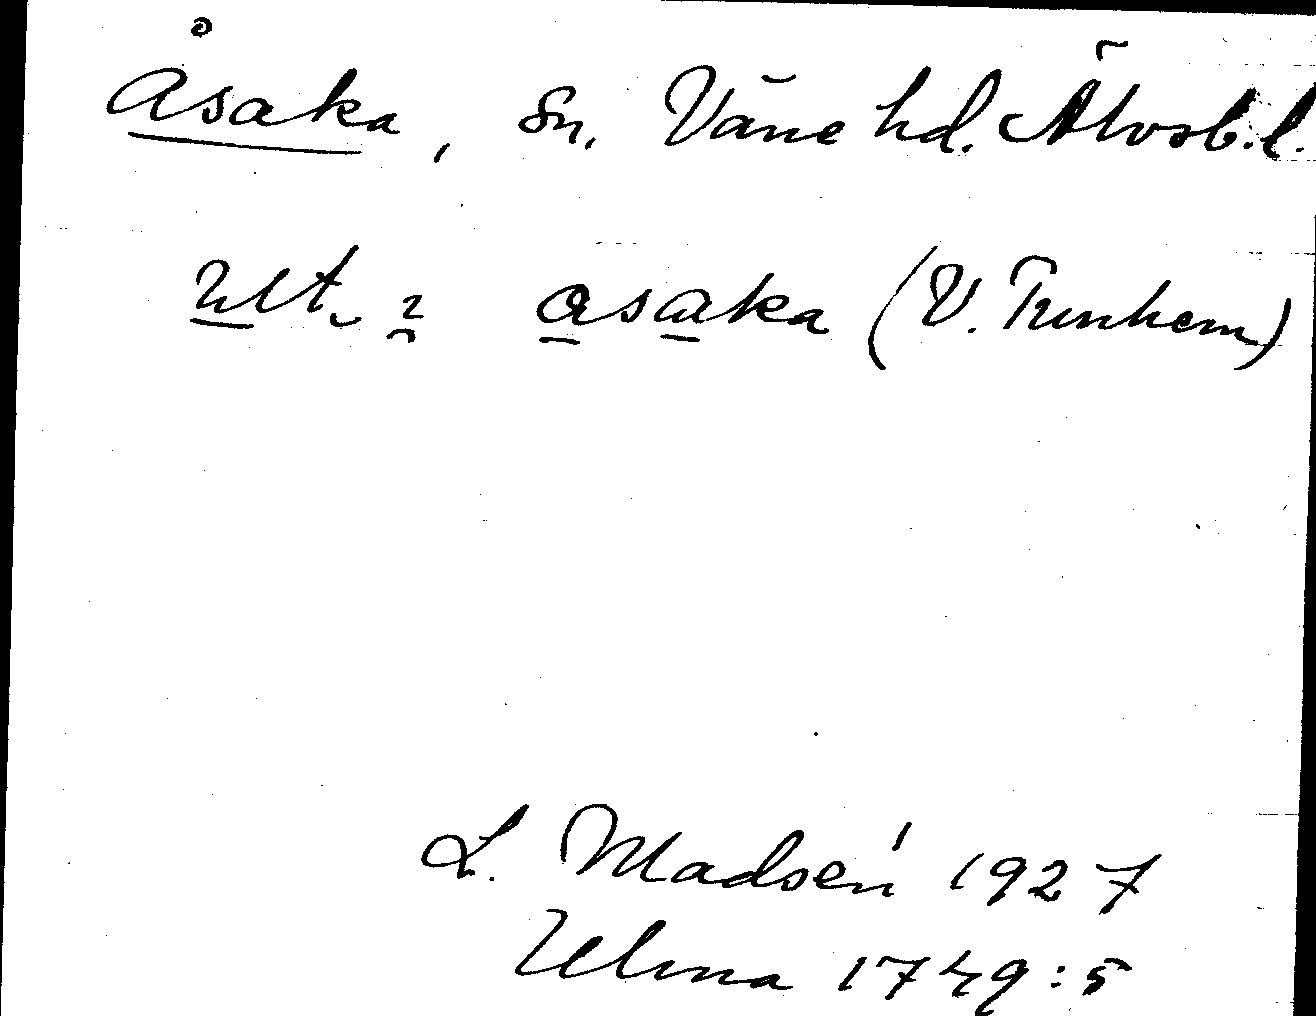 Åsaka, sn. Väne hd. Älvsb. l.
asaka (V. Tunhem)
L. Madsén 1927
Ulma 1749:5